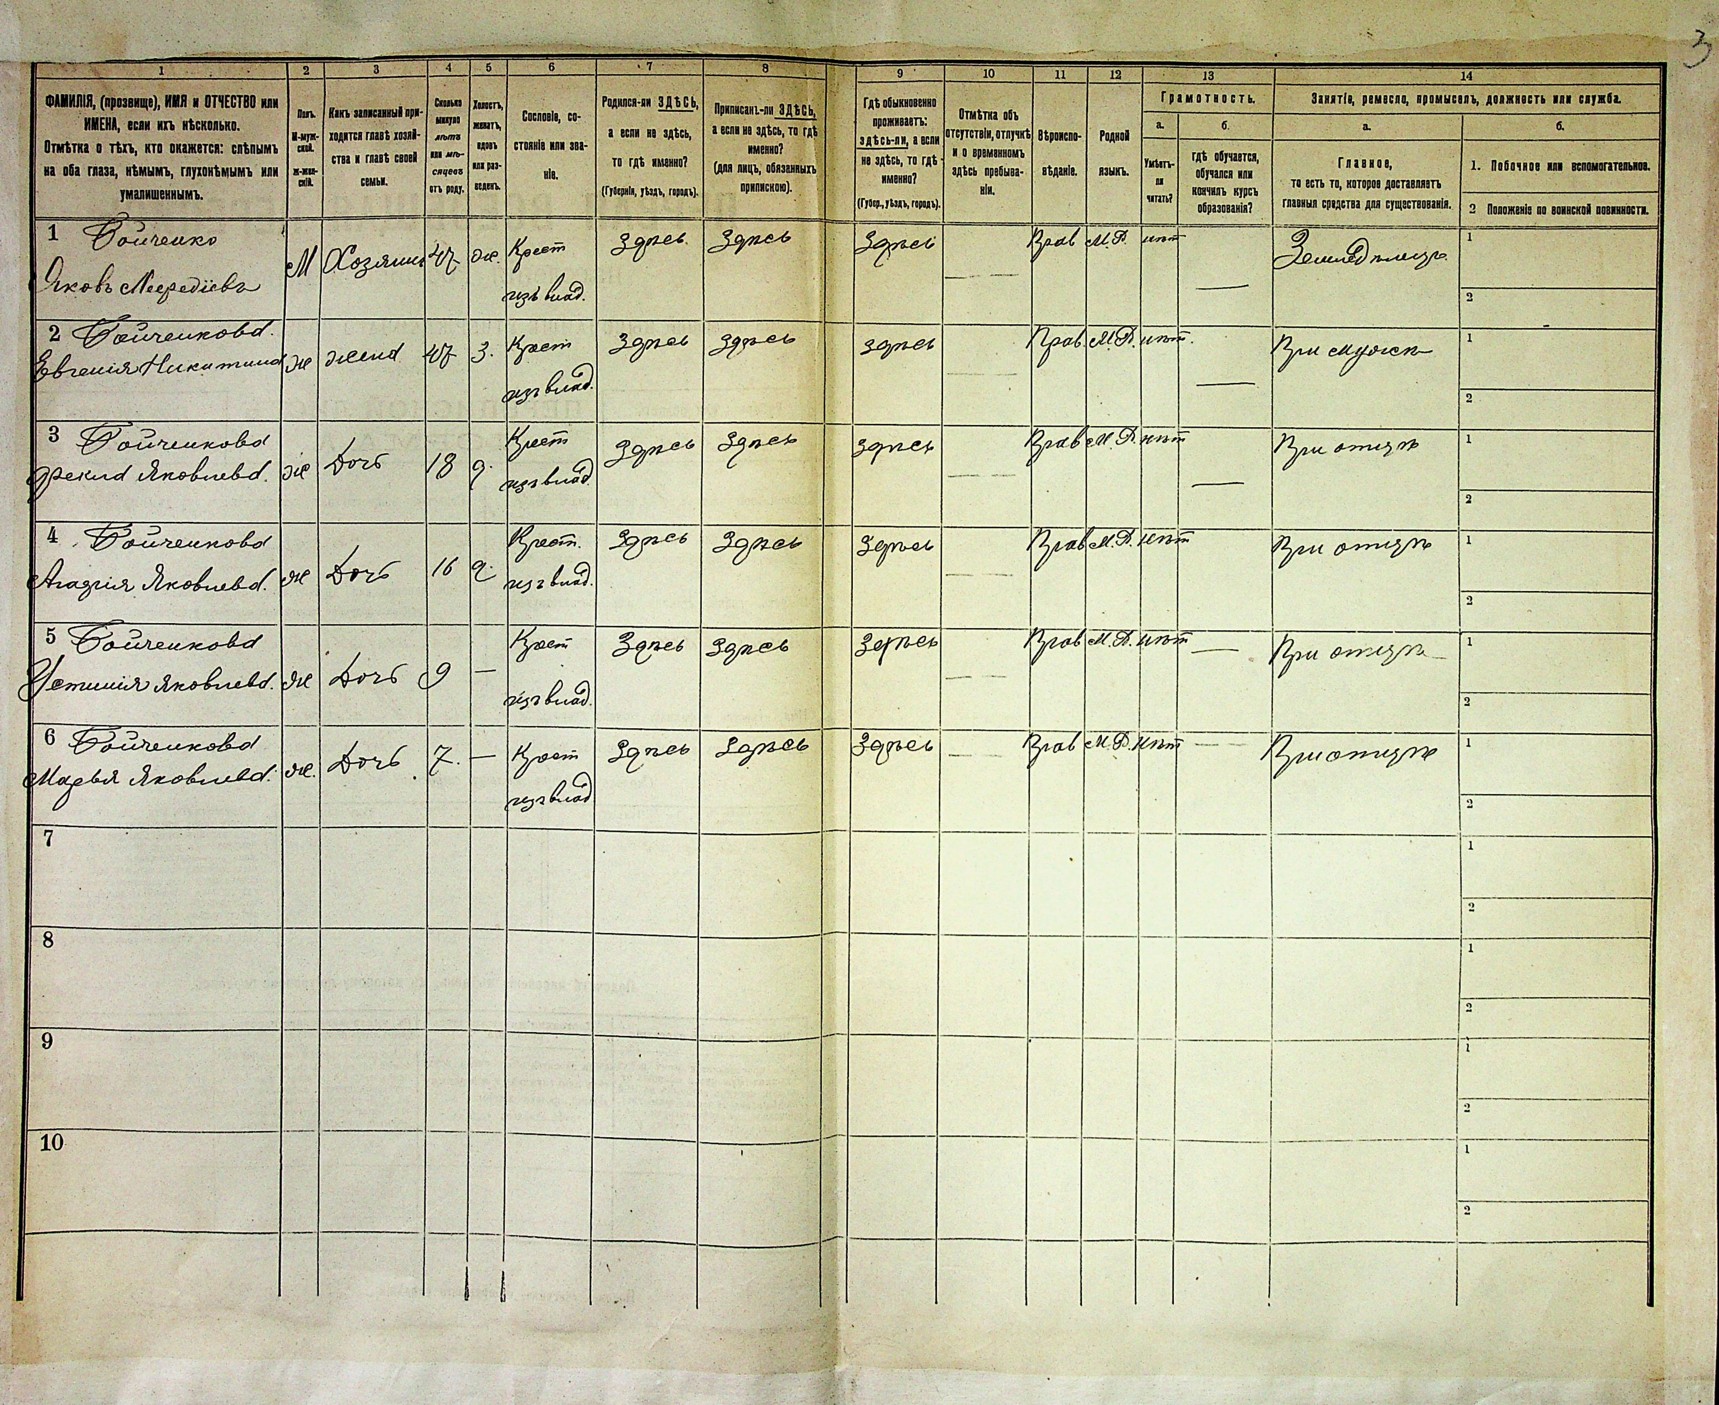 3
1 2 3 4 5 6 7 8 9 10 11 12 13 14
ФАМИЛІЯ, (прозвище), ИМЯ и ОТЧЕСТВО или
ИМЕНА, если ихъ нѣсколько.
Отмѣтка о тѣхъ, кто окажется: слѣпымъ
на оба глаза, нѣмымъ, глухонѣмымъ или
умалишеннымъ.
Полъ.
М-муж-
ской.
ж-жен-
скій.
Какъ записанный при-
ходится главѣ хозяй-
ства и главѣ своей
семьи.
Сколько
минуло
лѣтъ
или мѣ-
сяцевъ
отъ роду.
Холостъ,
женатъ,
вдовъ
или раз-
веденъ.
Сословіе, со-
стояніе или зва-
ніе.
Родился-ли ЗДѢСЬ,
а если не здѣсь,
то гдѣ именно?
(Губернія, уѣздъ, городъ).
Приписан.-ли ЗДѢСЬ,
а если не здѣсь, то гдѣ
именно?
(для лицъ, обязанныхъ
припискою).
Гдѣ обыкновенно
проживаетъ:
здѣсь-ли, а если
не здѣсь, то гдѣ
именно?
(Губер., уѣздъ, городъ).
Отмѣтка объ
отсутствіи, отлучкѣ
и о временномъ
здѣсь пребыва-
ніи.
Вѣроиспо-
вѣданіе.
Родной
языкъ.
Грамотность.
а.
Умѣетъ-
ли
читать?
б.
гдѣ обучается,
обучался или
кончилъ курсъ
образованія?
Занятіе, ремесло, промыселъ, должность или служба.
а.
Главное,
то есть то, которое доставляетъ
главныя средства для существованія.
б.
1. Побочное или вспомогательное.
2 Положеніе по воинской повинности.
1 Бойченко М Хозяинъ 47 же. Крест Здѣсь Здѣсь Здѣсь — Прав М.Р. нѣт — Земледѣлецъ 1
Яковъ изъ влад. 2
2 Бойченкова. же жена 47 з. Крест Здѣсь Здѣсь здѣсь — Прав. М.Р. нѣт. — При мужѣ 1
Евгенія Никитина изъ влад. 2
3 Бойченкова же Дочь 18 д. Крест Здѣсь Здѣсь здѣсь — Прав М.Р. нѣт — При отцѣ 1
Фекла Яковлева. изъ влад. 2
4 Бойченкова же Дочь 16 д. Крест. Здѣсь Здѣсь Здѣсь — Прав М.Р. нѣт При отцѣ 1
Агафія Яковлева. изъ влад. 2
5 Бойченкова же Дочь 9 — Крест Здѣсь Здѣсь Здѣсь — Прав М.Р. нѣт — При отцѣ 1
Устинія Яковлева. изъ влад. 2
6 Бойченкова же. Дочь 7. — Крест Здѣсь Здѣсь Здѣсь — Прав М.Р. нѣт — При отцѣ 1
Марья Яковлева. изъ влад 2
7 1
2
8 1
2
9 1
2
10 1
2